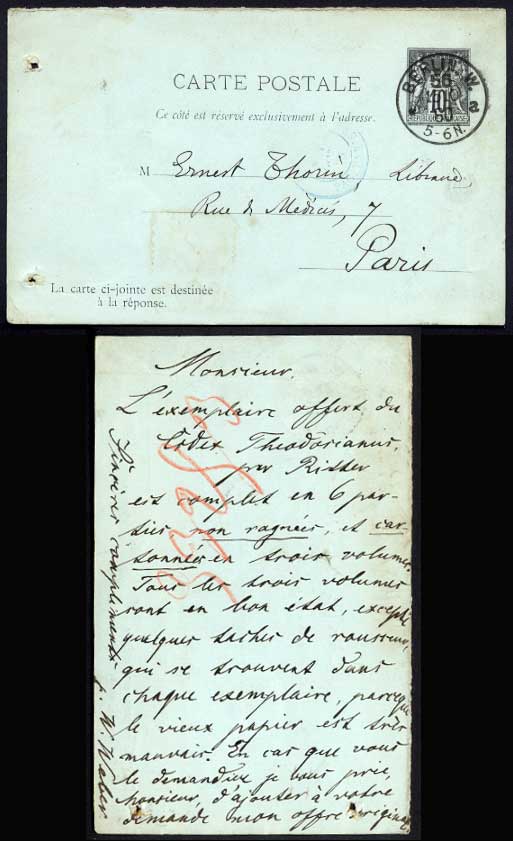 CARTE POSTALE
Ce côté est réservé exclusivement à l'adresse.
BERLIN, W.
56
a
5-6N.
10
M Ernest Thorin, Libraire,
Rue de Médicis, 7
Paris
La carte ci-jointe est destinée
à la réponse.
Monsieur.
L'exemplaire offert du
Codex Theodosianus,
par Ritter
est complet en 6 par-
ties non rognées, et car-
tonnées en trois volumes.
Tous les trois volumes
sont en bon état, excepté
quelques taches de rousseur,
qui se trouvent dans
chaque exemplaire, parceque
le vieux papier est très
mauvais. En cas que vous
le demandiez je vous prie,
Monsieur, d'ajouter à votre
demande mon offre original
Sincères compliments
W. Weber